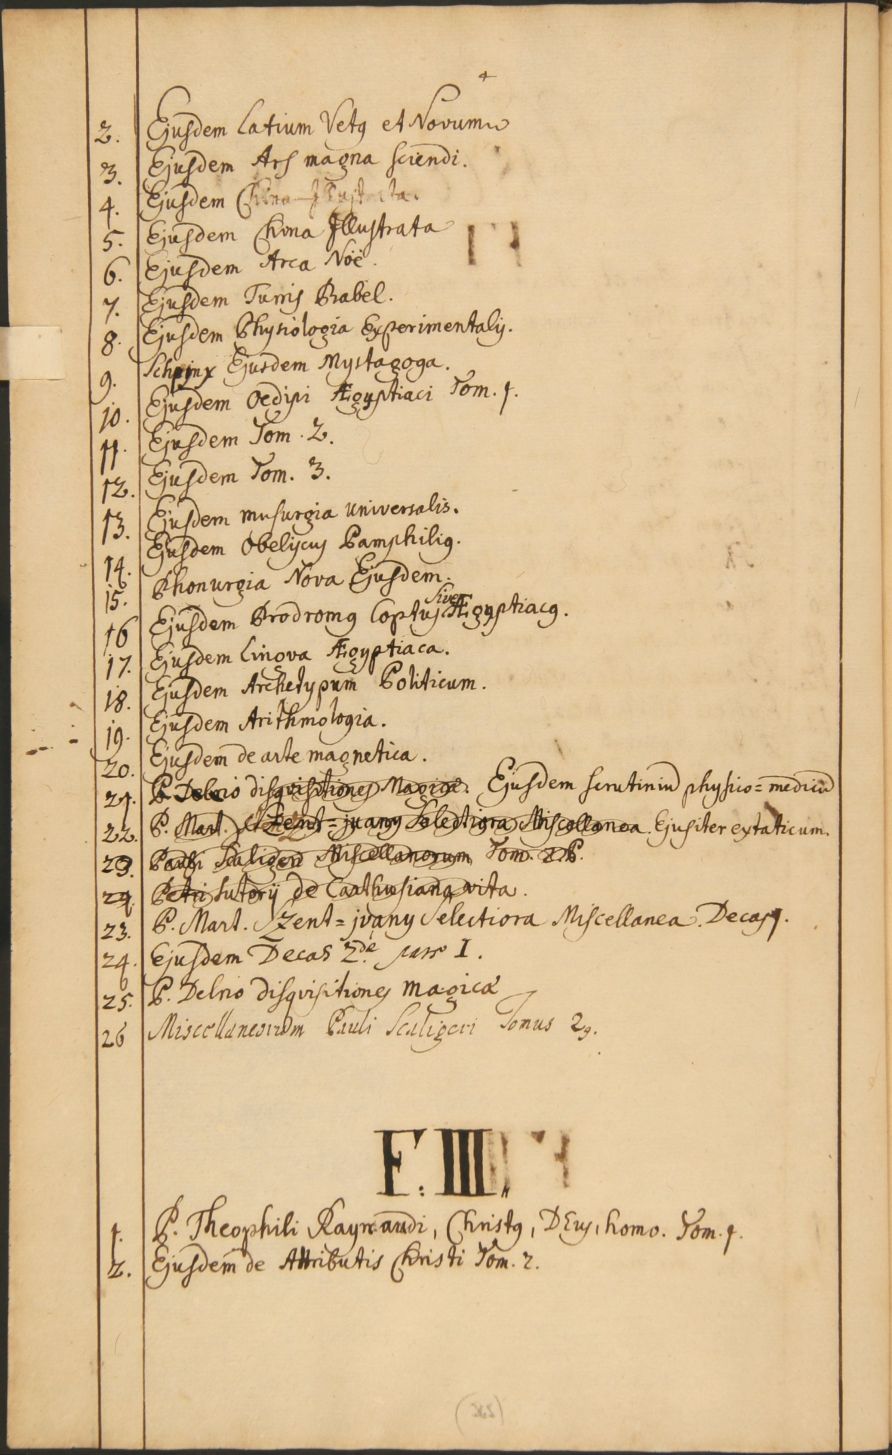 2. Ejusdem Latium Vetꝰ et Novum
3. Ejusdem Ars magna sciendi.
4. Ejusdem China Illustrata.
5. Ejusdem China Illustrata
6. Ejusdem Arca Noë.
7. Ejusdem Turris Babel.
8. Ejusdem Physiologia Experimentalis.
9. Schpinx Ejusdem Mystagoga.
10. Ejusdem Oedipi Ægyptiaci Tom. 1.
11. Ejusdem Tom. 2.
12. Ejusdem Tom. 3.
13. Ejusdem musurgia universalis.
14. Ejusdem Obeliscus Pamphiliꝰ.
15. Phonurgia Nova Ejusdem.
16 Ejusdem Prodromꝰ Coptus Sive Ægyptiacꝰ.
17. Ejusdem Lingva Ægyptiaca.
18. Ejusdem Archetypum Politicum.
19. Ejusdem Arithmologia.
20. Ejusdem de arte magnetica.
21. P. Delrio disquisitiones Magicæ. Ejusdem scrutiniū physico=medicū
22. P. Mart. Szent=jvany Selectiora Miscellanea Ejusiter extaticum.
23. Pauli Scaligeri Miscellanorum Tom.
24. Petri Sutorij de Carthusiana vita.
23. P. Mart. Szent=jvany Selectiora Miscellanea. Decas 1.
24. Ejusdem Decas 2.dæ pars I.
25. P. Delrio disqvisitiones magicæ
26 Miscellaneorum Pauli Scaligeri Tomus 2ꝰ.
F. III.
1. P. Theophili Raynaudi, Christꝰ, DEus, homo. Tom. 1.
2. Ejusdem de Attributis Christi Tom. 2.